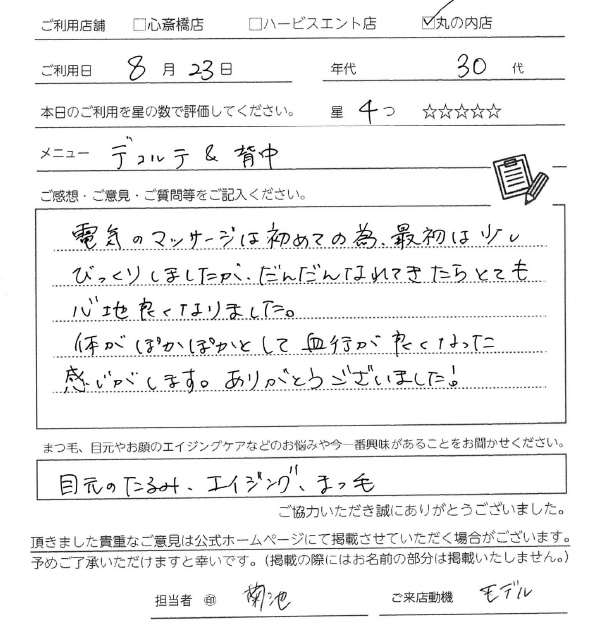 ご利用店舗 □心斎橋店 □ハービスエント店 ☑丸の内店
ご利用日 8月23日 年代 30代
本日のご利用を星の数で評価してください。 星 4つ ☆☆☆☆☆
メニュー デコルテ & 背中
ご感想・ご意見・ご質問等をご記入ください。
電気のマッサージは初めての為、最初は少し
びっくりしましたが、だんだんなれてきたらとても
心地良くなりました。
体がぽかぽかとして血行が良くなった
感じがします。ありがとうございました!
まつ毛、目元やお顔のエイジングケアなどのお悩みや今一番興味があることをお聞かせください。
目元のたるみ、エイジング、まつ毛
ご協力いただき誠にありがとうございました。
頂きました貴重なご意見は公式ホームページにて掲載させていただく場合がございます。
予めご了承いただけますと幸いです。(掲載の際にはお名前の部分は掲載いたしません。)
担当者 ㊞ 菊池 ご来店動機 モデル